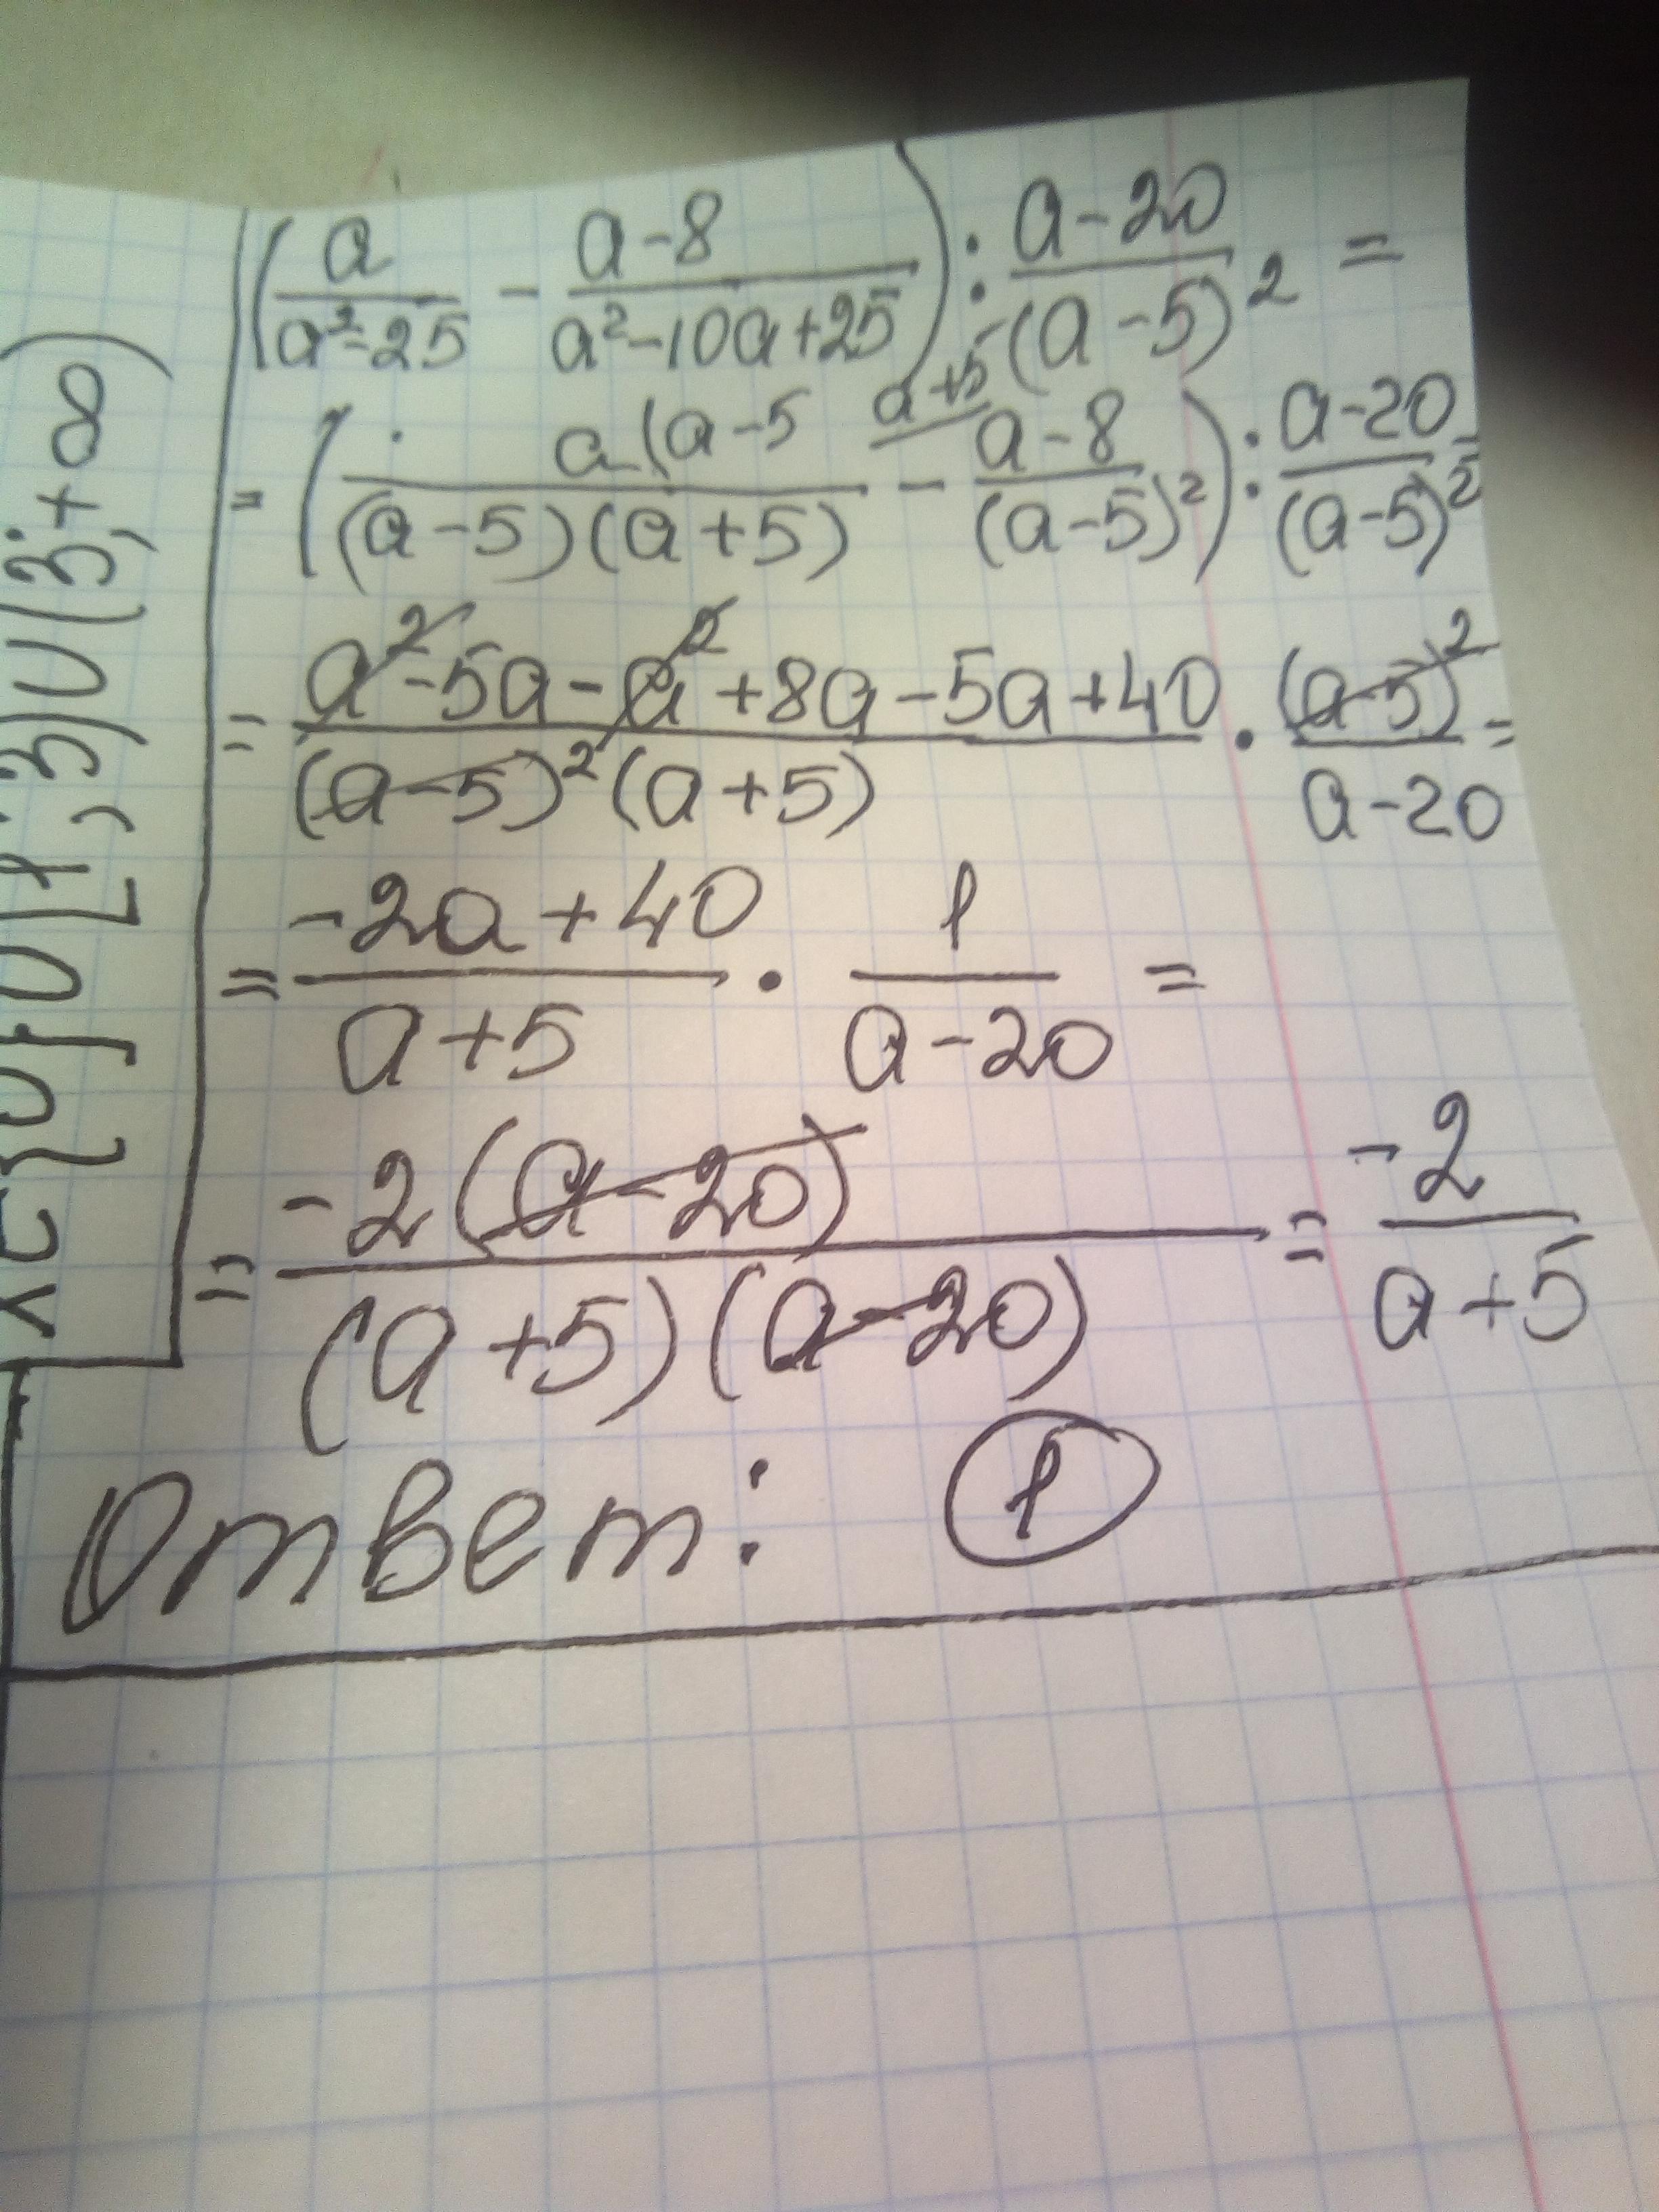 (a/(a²-25) - (a-8)/(a²-10a+25)) : (a-20)/(a-5)² =
= (a(a-5/(a-5)(a+5) - a+5 (a-8)/(a-5)²) : (a-20)/(a-5)² =
= (a²-5a-a²+8a-5a+40)/((a-5)²(a+5)) · (a-5)²/(a-20) =
= (-2a+40)/(a+5) · 1/(a-20) =
= -2(a-20)/((a+5)(a-20)) = -2/(a+5)
Ответ: 1
x∈{0}∪[1;3)∪(3;+∞)